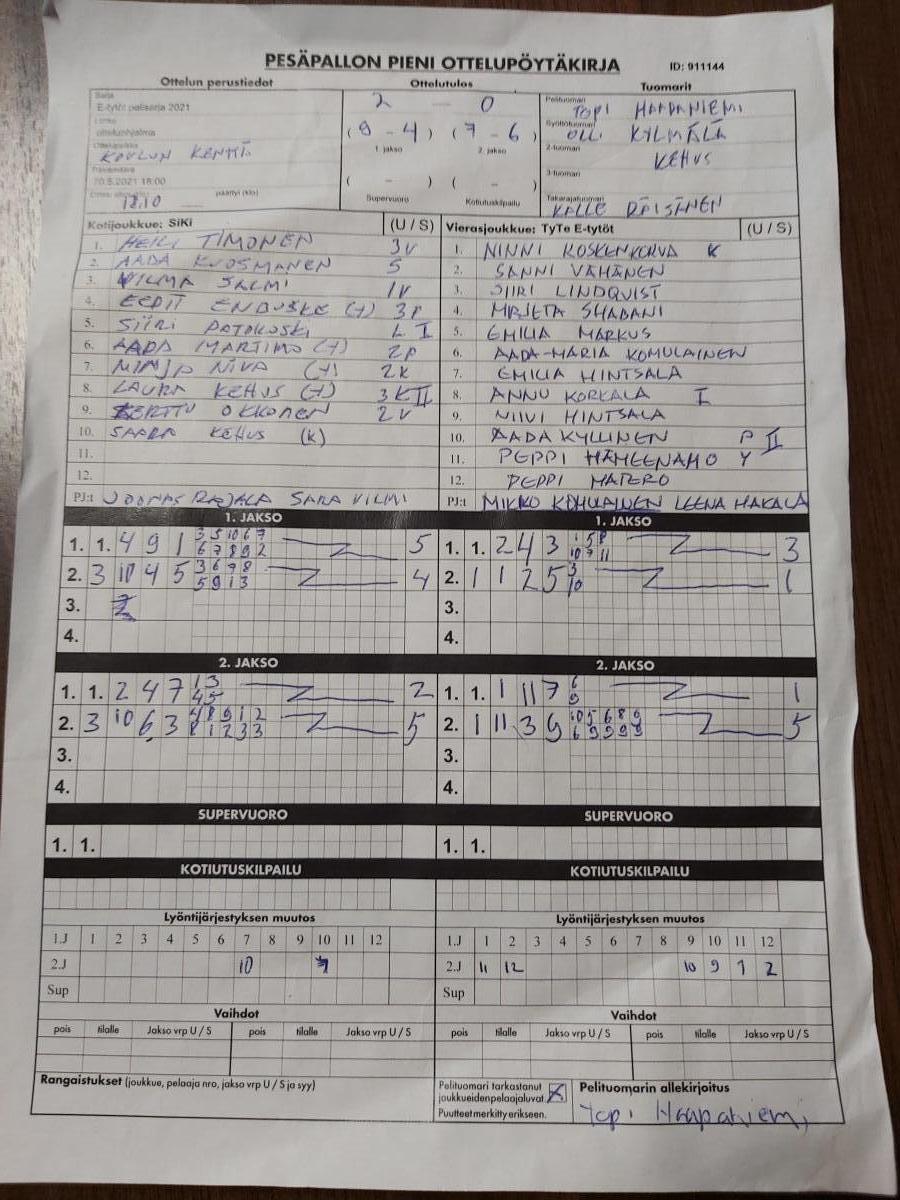 PESÄPALLON PIENI OTTELUPÖYTÄKIRJA ID: 911144
Ottelun perustiedot Ottelutulos Tuomarit
Sarja
E-tytöt palisarja 2021
Lohko
otteluohjelma
Ottelupaikka
KOULUN KENTTÄ
Päivämäärä
20.5.2021 18:00
18.10 päättyi (klo)
2 - 0
(9 - 4) (7 - 6)
1. jakso 2. jakso
( - ) ( - )
Supervuoro Kotiutuskilpailu
Pelituomari
TOPI HAAPANIEMI
Syöttötuomari
OLLI KYLMÄLÄ
2-tuomari
KEHUS
3-tuomari
Takarajatuomari
KALLE RÄISÄNEN
Kotijoukkue: SiKi (U / S)
1. HEILI TIMONEN 3V
2. AADA KUOSMANEN S
3. VILMA SALMI 1V
4. EEDIT ENBUSKE (+) 3P
5. SIIRI PATOKOSKI L I
6. AADA MARTIMO (+) 2P
7. MINJA NIVA (+) 2K
8. LAURA KEHUS (+) 3K II
9. KERTTU OKKONEN 2V
10. SAARA KEHUS (K)
11.
12.
PJ:t JOONAS RAJALA SARA VILMI
Vierasjoukkue: TyTe E-tytöt (U / S)
1. NINNI KOSKENKORVA K
2. SANNI VÄHÄNEN
3. SIIRI LINDQVIST
4. MRIETA SHABANI
5. EMILIA MARKUS
6. AADA-MARIA KOMULAINEN
7. EMILIA HINTSALA
8. ANNU KORKALA I
9. NIIVI HINTSALA
10. AADA KYLLINEN P II
11. PEPPI HÄMEENAHO Y
12. PEPPI MATERO
PJ:t MIKKO KOMULAINEN LEENA HAKALA
1. JAKSO
1. 1. 4 9 1 3 5 10 6 7 5
6 7 8 9 2
2. 3 10 4 5 3 6 7 8 4
5 9 1 3
3.
4.
1. JAKSO
1. 1. 2 4 3 1 5 8 3
10 7 11
2. 1 1 2 5 3 1
10
3.
4.
2. JAKSO
1. 1. 2 4 7 1 3 2
4 5
2. 3 10 6 3 4 8 9 1 2 5
8 1 2 3 3
3.
4.
2. JAKSO
1. 1. 1 11 7 6 1
9
2. 1 11 3 9 10 5 6 8 9 5
6 9 9 9 9
3.
4.
SUPERVUORO
1. 1.
SUPERVUORO
1. 1.
KOTIUTUSKILPAILU
KOTIUTUSKILPAILU
Lyöntijärjestyksen muutos
1.J 1 2 3 4 5 6 7 8 9 10 11 12
2.J 10 7
Sup
Lyöntijärjestyksen muutos
1.J 1 2 3 4 5 6 7 8 9 10 11 12
2.J 11 12 10 9 1 2
Sup
Vaihdot
pois tilalle Jakso vrp U / S pois tilalle Jakso vrp U / S
Vaihdot
pois tilalle Jakso vrp U / S pois tilalle Jakso vrp U / S
Rangaistukset (joukkue, pelaaja nro, jakso vrp U / S ja syy)
Pelituomari tarkastanut
joukkueiden pelaajaluvat. X
Puutteet merkitty erikseen.
Pelituomarin allekirjoitus
Topi Haapaniemi